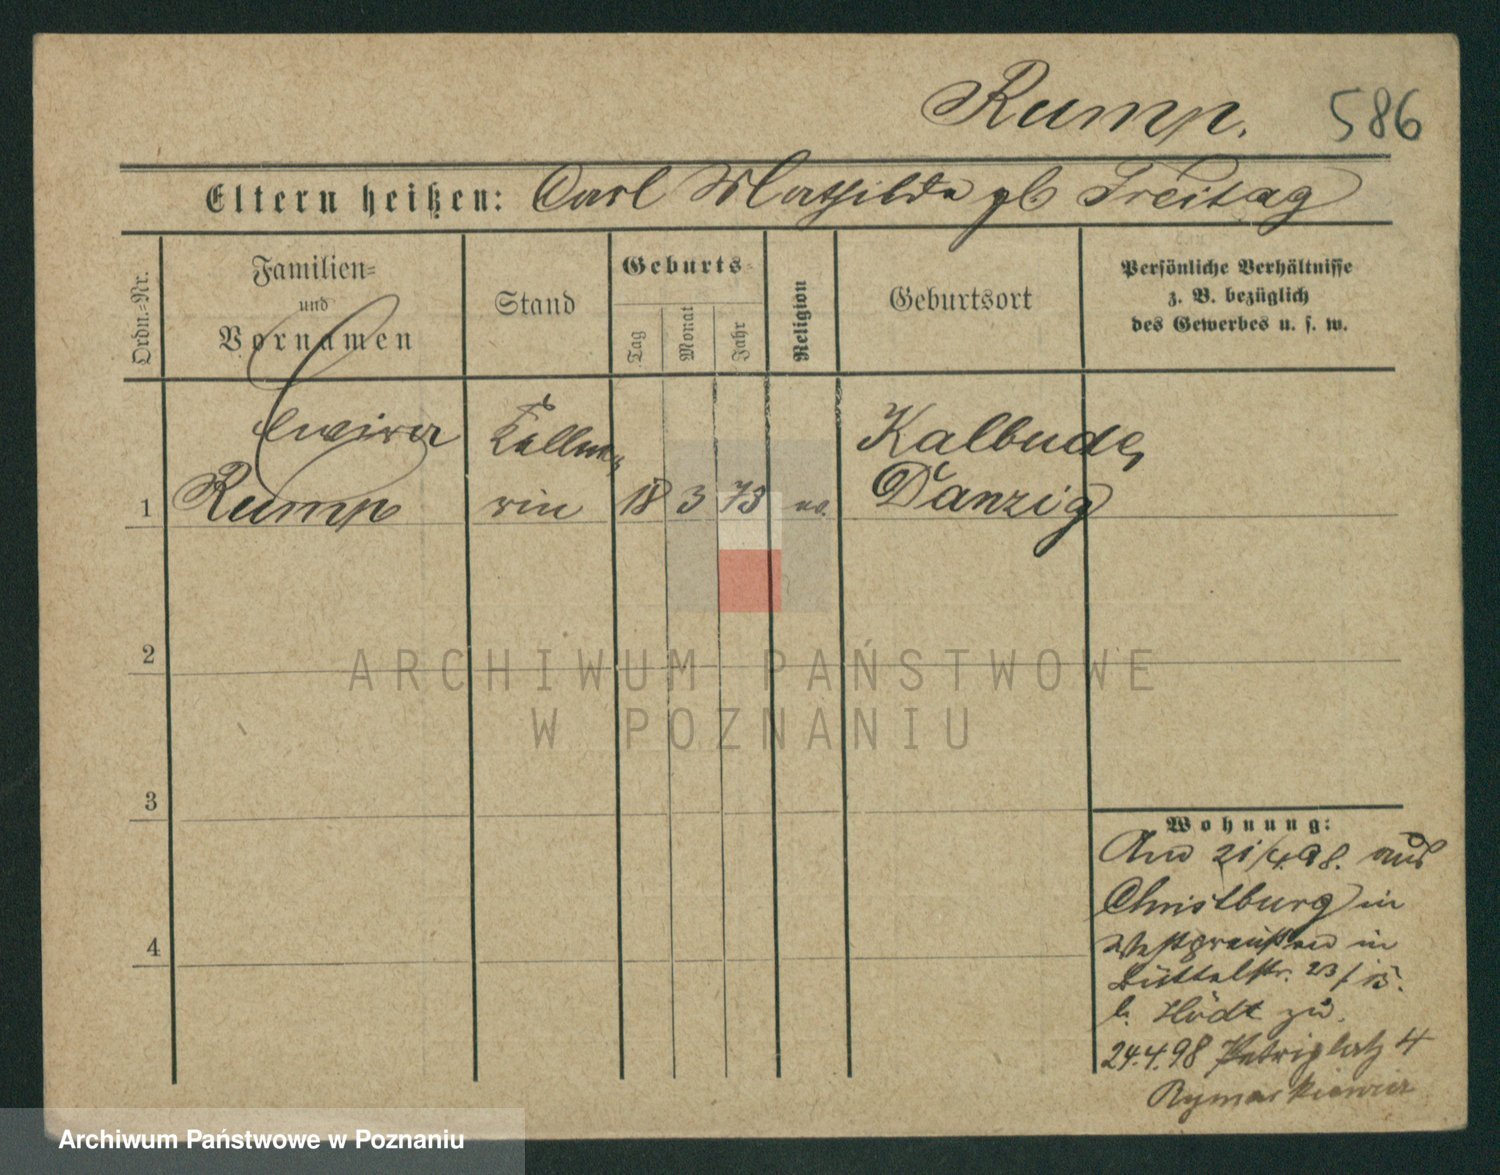 Rump. 586
Eltern heißen: Carl Mathilda gb Freitag
Ordn.=Nr.
Familien=
und
Vornamen
Stand
Geburts=
Tag
Monat
Jahr
Religion
Geburtsort
Persönliche Verhältnisse
z. B. bezüglich
des Gewerbes u. s. w.
Elwira Kellne Kalbude,
1 Rump rin 18 3 73 ev. Danzig
2
3
4
Wohnung:
21/4.98. aus
Christburg in
Westpreußen in
Büttelstr. 23/
b. Hödt zu.
24.4.98 Petriplatz 4
Rymarkiewicz
ARCHIWUM PAŃSTWOWE
W POZNANIU
Archiwum Państwowe w Poznaniu